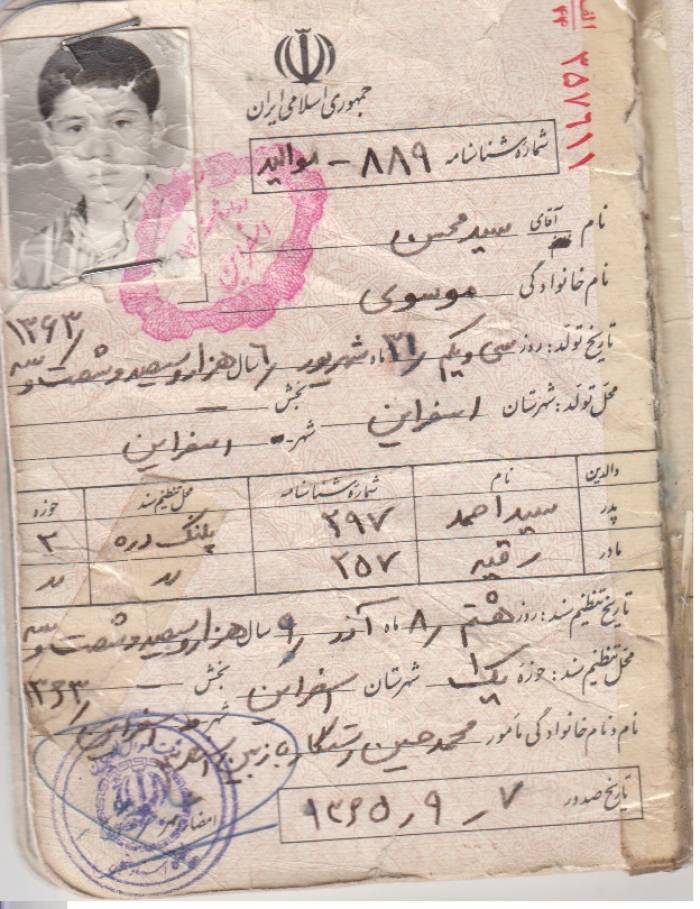 الف
۴۴
۲۵۷۶۱۱
جمهوری اسلامی ایران
شماره شناسنامه ۸۸۹ - موالید
نام آقای سید محسن
نام خانوادگی موسوی
۱۳۶۳
تاریخ تولد: روز سی و یکم / ۳۱ ماه شهریور / ۶ سال هزار و سیصد و شصت و سه
محل تولد: شهرستان اسفراین بخش —
شهر اسفراین
والدین نام شماره شناسنامه محل تنظیم سند حوزه
پدر سید احمد ۲۹۷ پلنگ دره ۲
مادر رقیه ۲۵۷ 〃 〃
تاریخ تنظیم سند: روز هشتم / ۸ ماه آذر / ۹ سال هزار و سیصد و شصت و سه
محل تنظیم سند: حوزه یک ۱ شهرستان اسفراین بخش — ۱۳۶۳
شهر اسفراین
نام و نام خانوادگی مأمور محمد حسین
امضاء و مهر
تاریخ صدور ۷ ر ۹ ر ۱۳۶۵